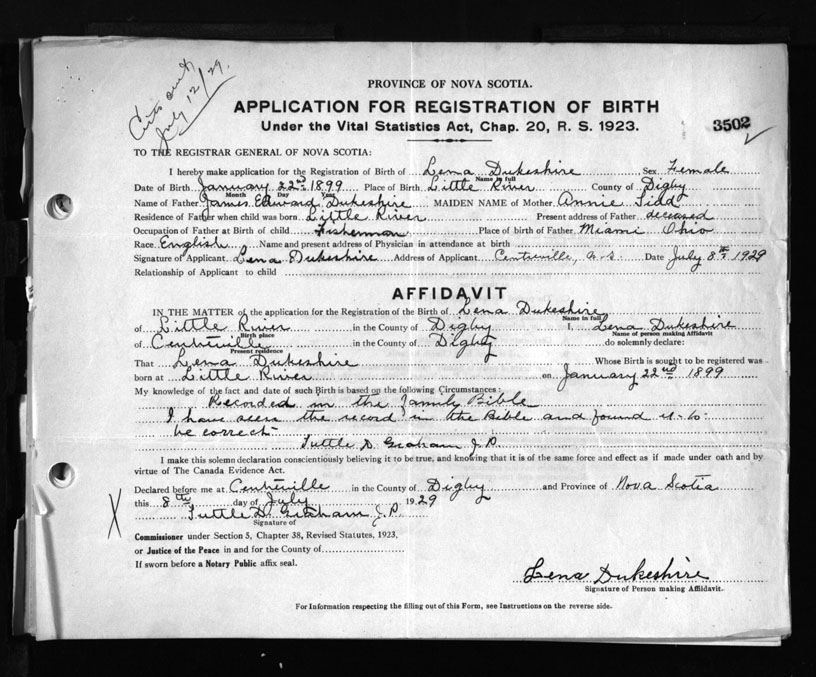 Certs sent
July 12/29.
PROVINCE OF NOVA SCOTIA.
APPLICATION FOR REGISTRATION OF BIRTH
Under the Vital Statistics Act, Chap. 20, R. S. 1923.
3502
TO THE REGISTRAR GENERAL OF NOVA SCOTIA:
I hereby make application for the Registration of Birth of Lena Dukeshire Sex Female
Name in full
Date of Birth January 22nd 1899 Place of Birth Little River County of Digby
Month Day Year
Name of Father James Edward Dukeshire MAIDEN NAME of Mother Annie Tidd
Residence of Father when child was born Little River Present address of Father deceased
Occupation of Father at Birth of child Fisherman Place of birth of Father Miami Ohio
Race English Name and present address of Physician in attendance at birth
Signature of Applicant Lena Dukeshire Address of Applicant Centreville, N.S. Date July 8th 1929
Relationship of Applicant to child
AFFIDAVIT
IN THE MATTER of the application for the Registration of the Birth of Lena Dukeshire
Name in full
of Little River in the County of Digby I, Lena Dukeshire
Birth place Name of person making Affidavit
of Centreville in the County of Digby do solemnly declare:
Present residence
That Lena Dukeshire Whose Birth is sought to be registered was
born at Little River on January 22nd 1899
My knowledge of the fact and date of such Birth is based on the following Circumstances:
Recorded in the family Bible
I have seen the record in the Bible and found it to
be correct
Tuttle D. Graham J.P.
I make this solemn declaration conscientiously believing it to be true, and knowing that it is of the same force and effect as if made under oath and by
virtue of The Canada Evidence Act.
Declared before me at Centreville in the County of Digby and Province of Nova Scotia
this 8th day of July 1929
X Tuttle D. Graham J.P.
Signature of
Commissioner under Section 5, Chapter 38, Revised Statutes, 1923.
or Justice of the Peace in and for the County of
If sworn before a Notary Public affix seal.
Lena Dukeshire
Signature of Person making Affidavit.
For Information respecting the filling out of this Form, see Instructions on the reverse side.